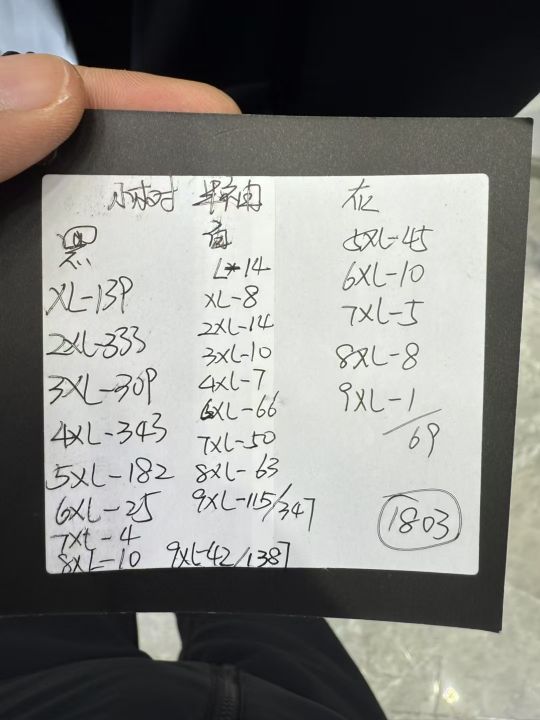 黑
XL-139
2XL-333
3XL-309
4XL-343
5XL-182
6XL-25
7XL-4
8XL-10
9XL-42/1387
L-14
XL-8
2XL-14
3XL-10
4XL-7
6XL-66
7XL-50
8XL-63
9XL-115/347
5XL-45
6XL-10
7XL-5
8XL-8
9XL-1
/69
1803